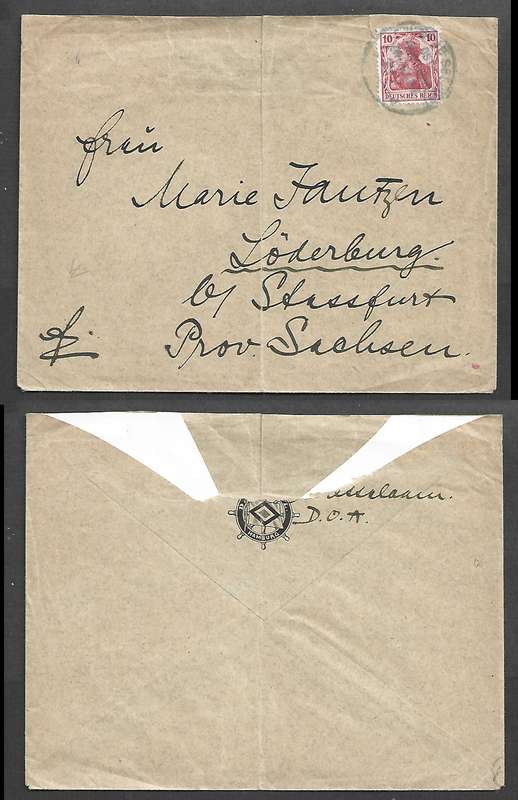 10 10
DEUTSCHES REICH
Frau
Marie Jantzen
Löderburg.
b/ Stassfurt
Prov. Sachsen.
HAMBURG
D.O.A.